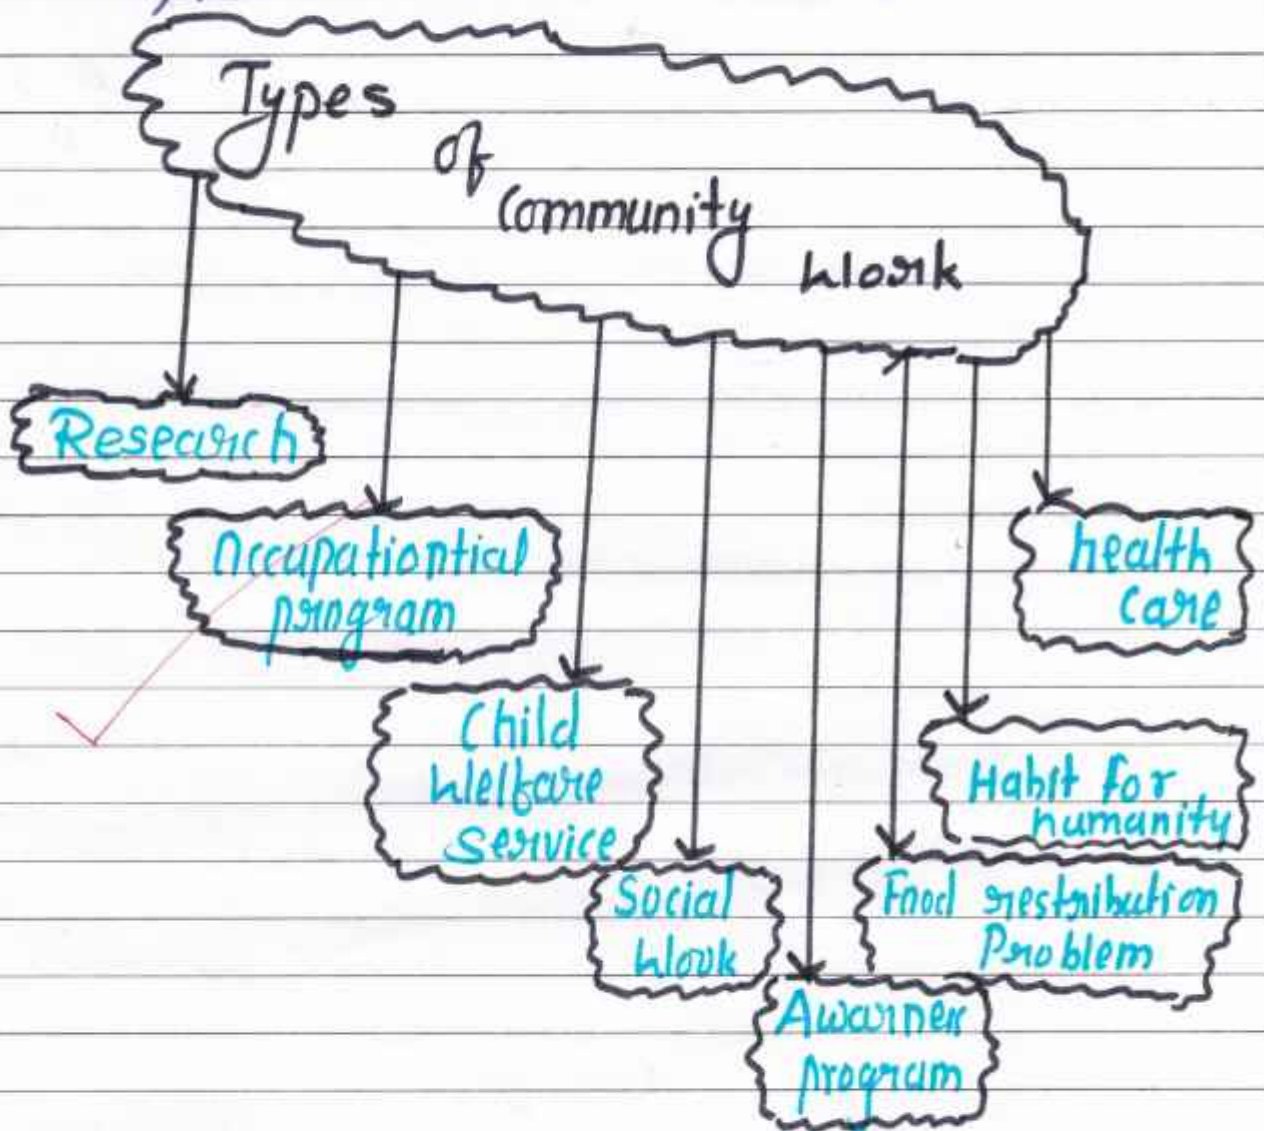 Types
of
Community
Work
Research
Occupationtial
program
Child
Welfare
Service
Social
Work
Awarness
program
Food restribution
Problem
Habit For
humanity
health
Care